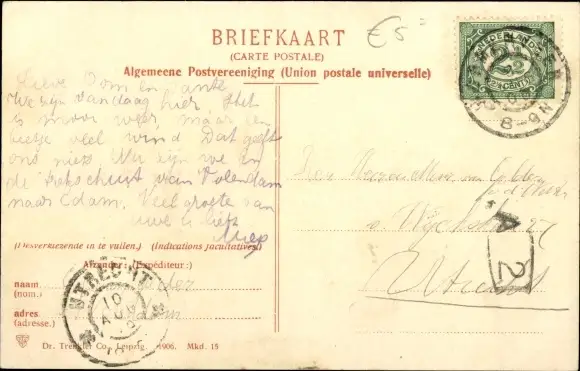 € 5
BRIEFKAART
(CARTE POSTALE)
Algemeene Postvereeniging (Union postale universelle)
NEDERLAND
2½
CENT
8-9N
Lieve Oom en ante
We zijn vandaag hier, Het
is mooi weer, maar een
beetje veel wind Dat geeft
ons niets. Nu zijn we in
de trekschuit van Volendam
naar Edam. Veel groeten van
uwe u liefh
Miep
Den Heer en Mevr.
27
Utrecht
A 2
(Desverkiezende in te vullen.) (Indications facultatives)
Afzender: (Expéditeur:)
naam
(nom.)
adres
(adresse.)
UTRECHT
10
AUG
Dr. Trenkler Co., Leipzig. 1906. Mkd. 15